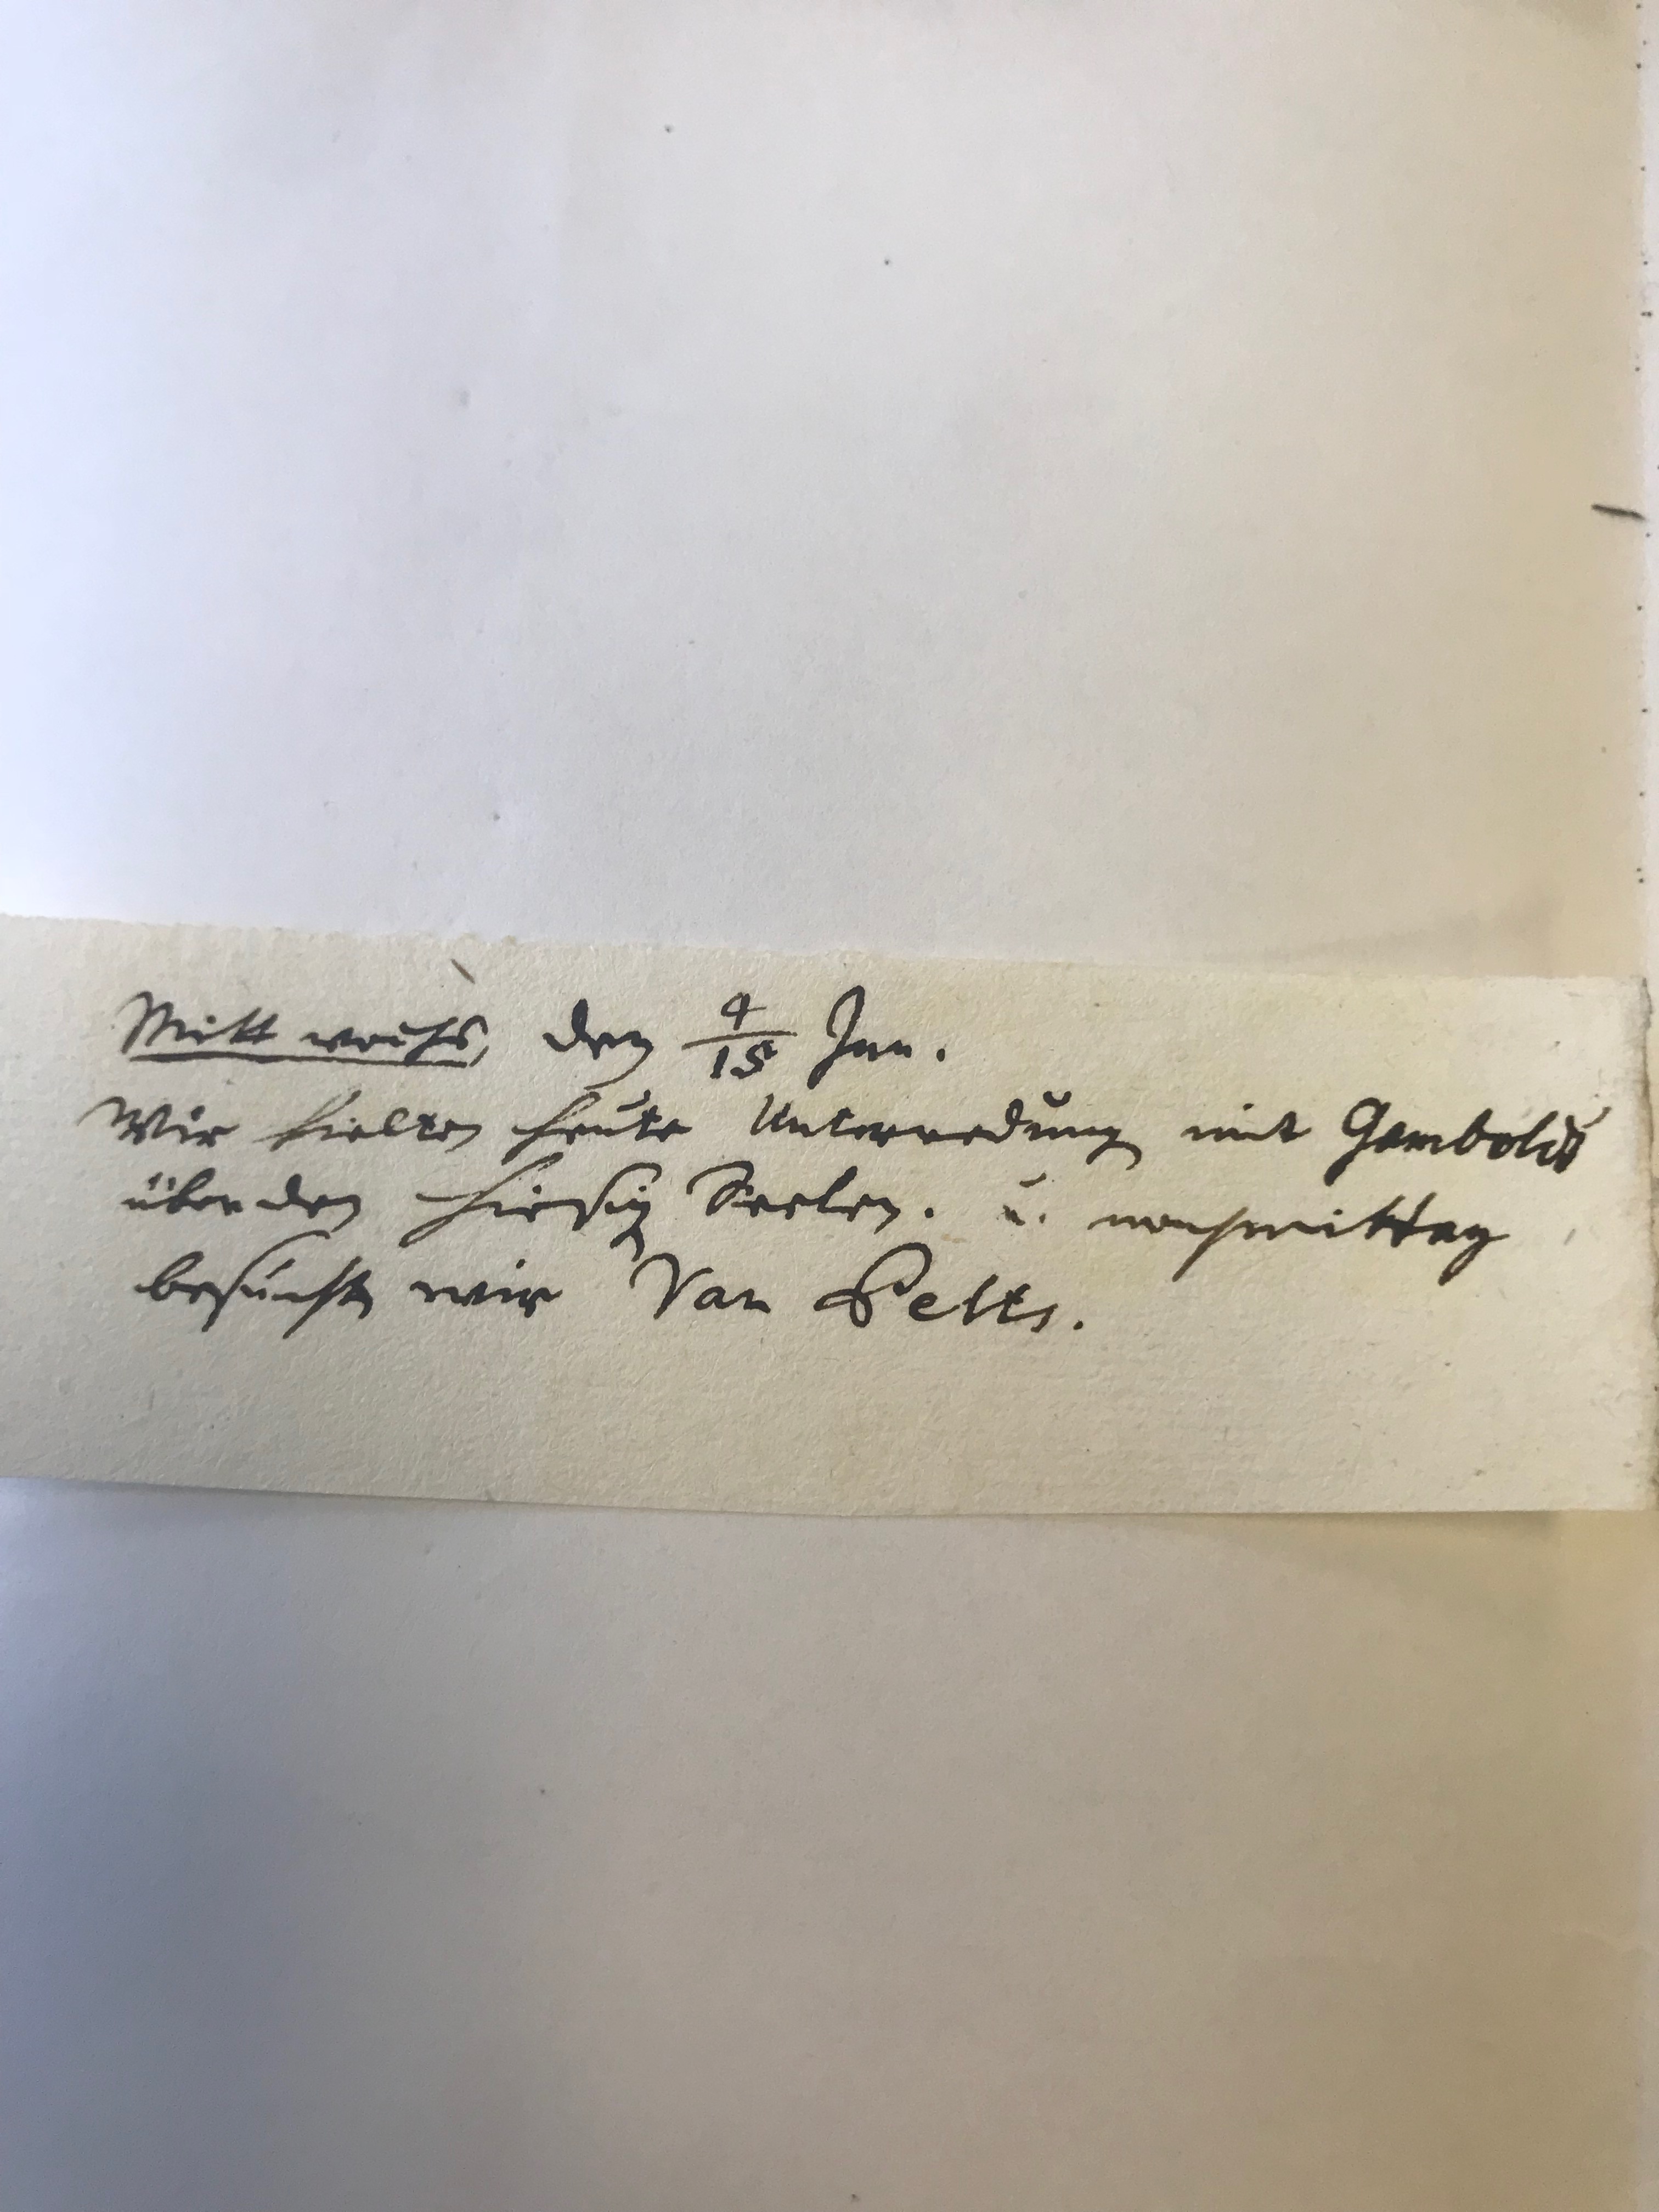 Mittwochs, den 4/15 Jan.
Wir hielten heute Unterredung mit Gambolds
über den hiesig Seelen. u. nachmittag
besuchten wir Van Pelts.